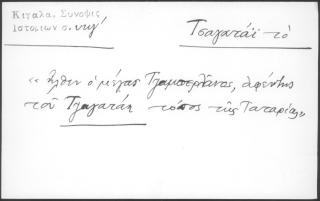 Κιγάλα. Σύνοψις
Ἱστοριῶν σ. υιγ'
Τσαγατάϊ τὸ
«ἦλθεν ὁ μέγας Τζαμπερλάνος, ἀφέντης
τοῦ Τζαγατάη τόπος τῆς Ταταρίας»